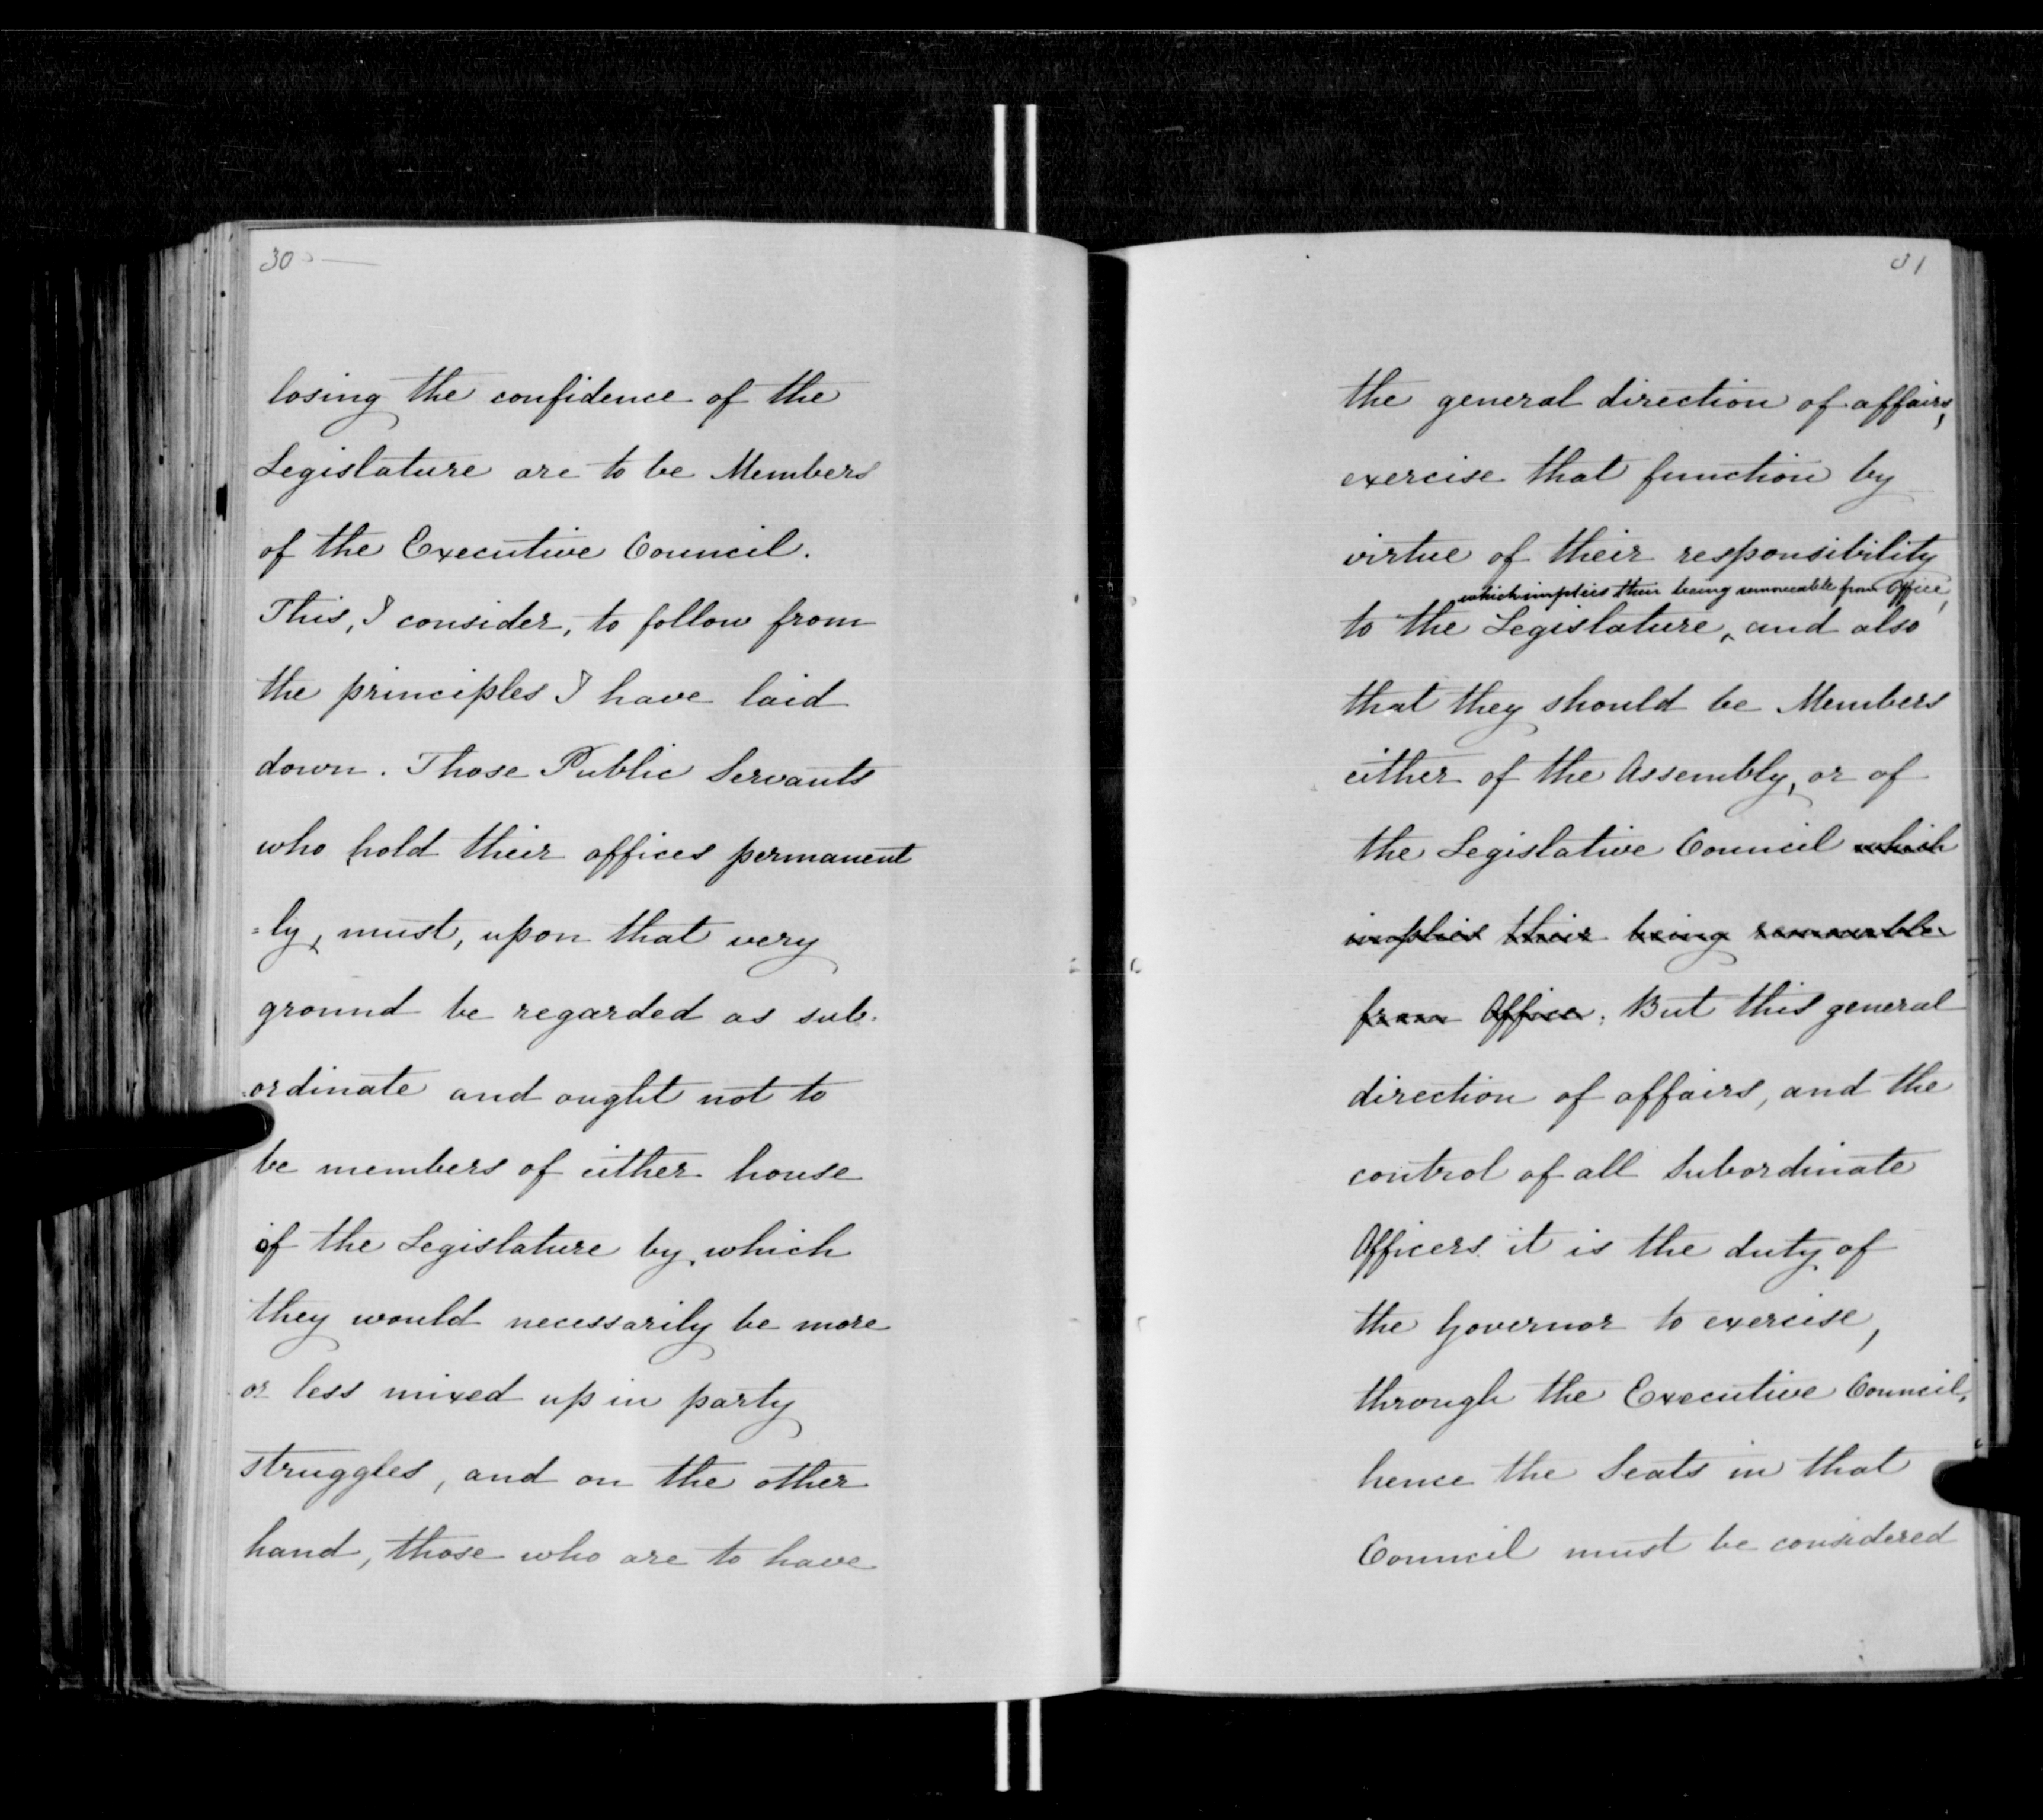 30
losing the confidence of the
Legislature are to be Members
of the Executive Council.
This, I consider, to follow from
the principles I have laid
down. Those Public Servants
who hold their offices permanent
=ly, must, upon that very
ground be regarded as sub-
ordinate and ought not to
be members of either house
of the Legislature by which
they would necessarily be more
or less mixed up in party
struggles, and on the other
hand, those who are to have
31
the general direction of affairs,
exercise that function by
virtue of their responsibility
which implies their being removeable from Office,
to the Legislature, and also
that they should be Members
either of the Assembly, or of
the Legislative Council which
implies their being removable
from Office. But this general
direction of affairs, and the
control of all Subordinate
Officers it is the duty of
the Governor to exercise,
through the Executive Council,
hence the Seats in that
Council must be considered